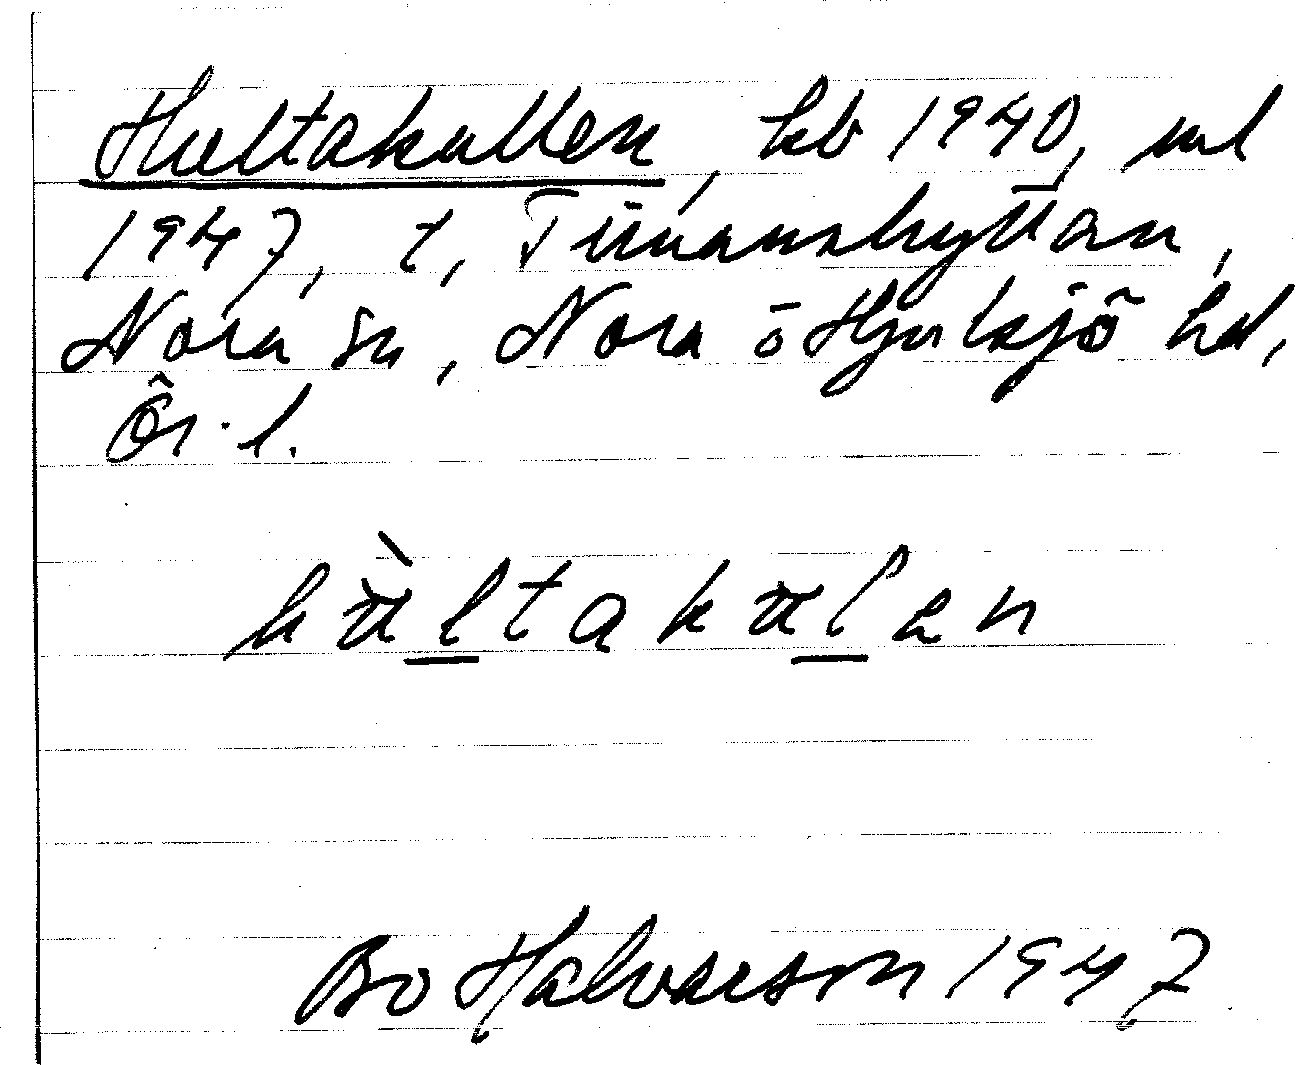 Hultakullen, kb 1940, ml
1947, t, Timanshyttan,
Nora sn, Nora o Hjulsjö hd,
Ör. l.
hùltakulan
Bo Halvarson 1947